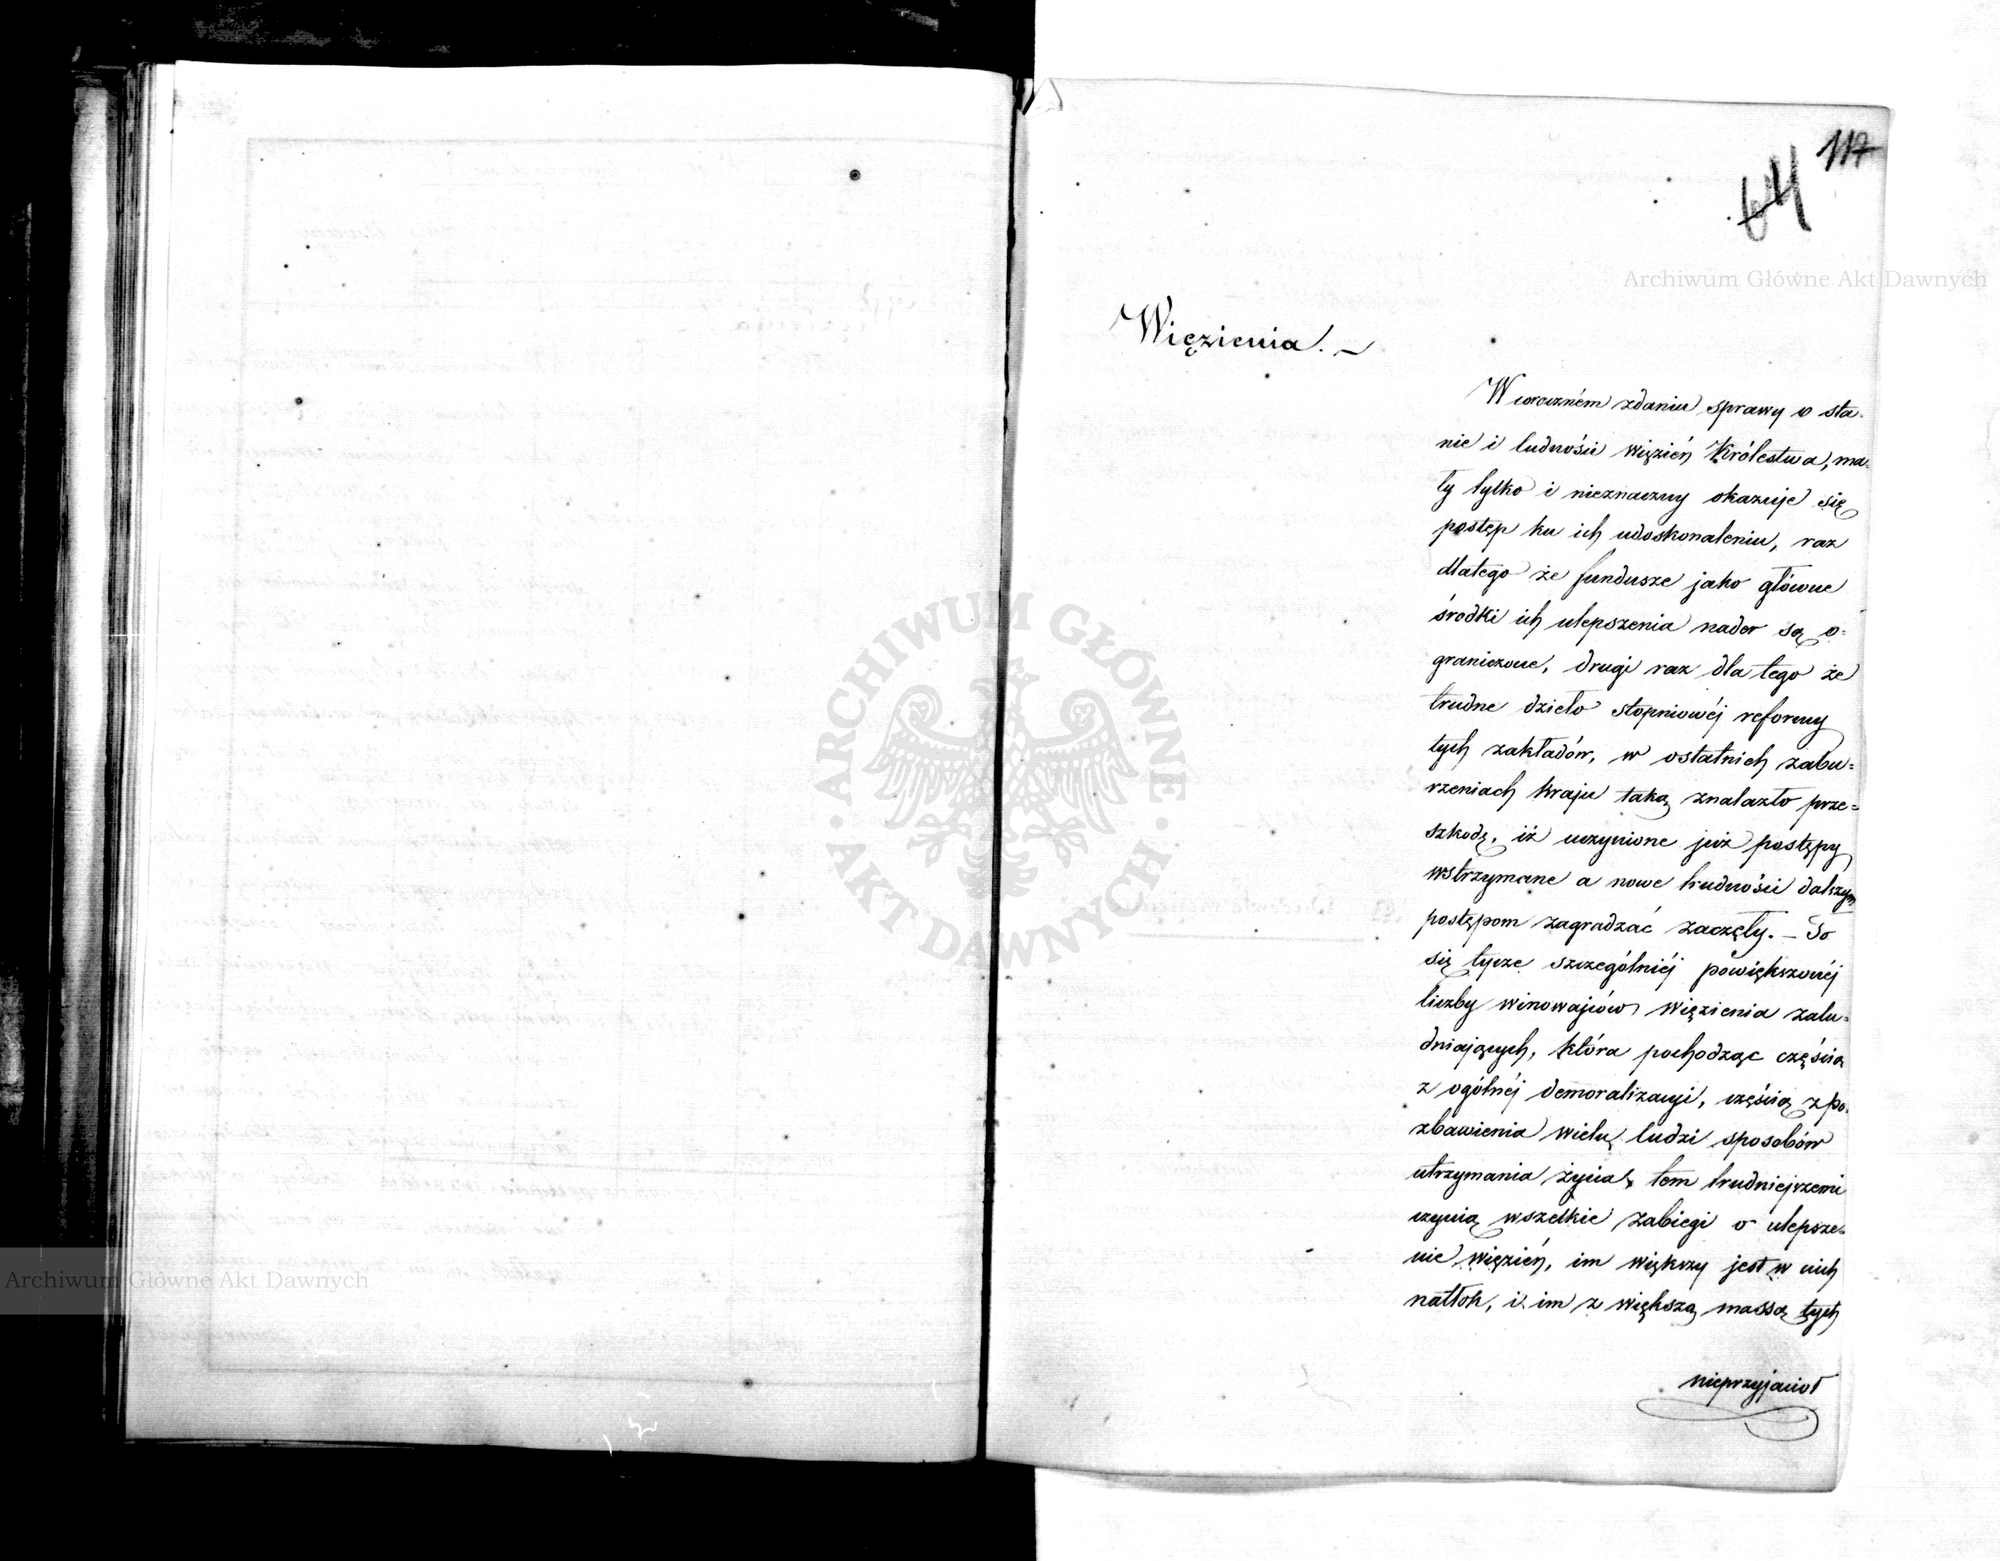 117
64
Archiwum Główne Akt Dawnych
Więzienia. —
W roczném zdaniu sprawy o sta-
nie i ludności więzień Królestwa, ma-
ły tylko i nieznaczny okazuje się
postęp ku ich udoskonaleniu, raz
dlatego że fundusze jako główne
środki ich ulepszenia nader są o-
graniczone, drugi raz dla tego że
trudne dzieło stopniowéj reformy
tych zakładów, w ostatnich zabu-
rzeniach kraju taką znalazło prze-
szkodę, iż uczynione już postępy
wstrzymane a nowe trudności dalszym
postępom zagradzać zaczęły. — To
się tycze szczególniéj powiększonéj
liczby winowajców więzienia zalu-
dniających, która pochodząc częścią
z ogólnéj demoralizacyi, częścią z po-
zbawienia wielu ludzi sposobów
utrzymania życia, tem trudniejszemi
czynią wszelkie zabiegi o ulepsze-
nie więzień, im większy jest w nich
natłok, i im z większą massą tych
nieprzyjaciół
ARCHIWUM GŁÓWNE
AKT DAWNYCH
Archiwum Główne Akt Dawnych